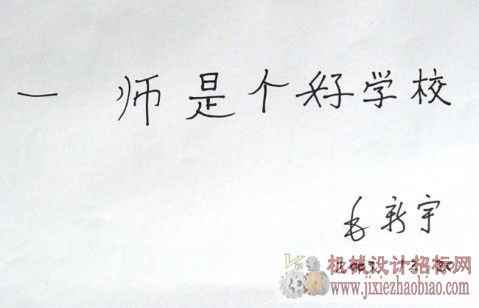 一 师是个好学校
毛新宇
机械设计招标网
www.jixiezhaobiao.com